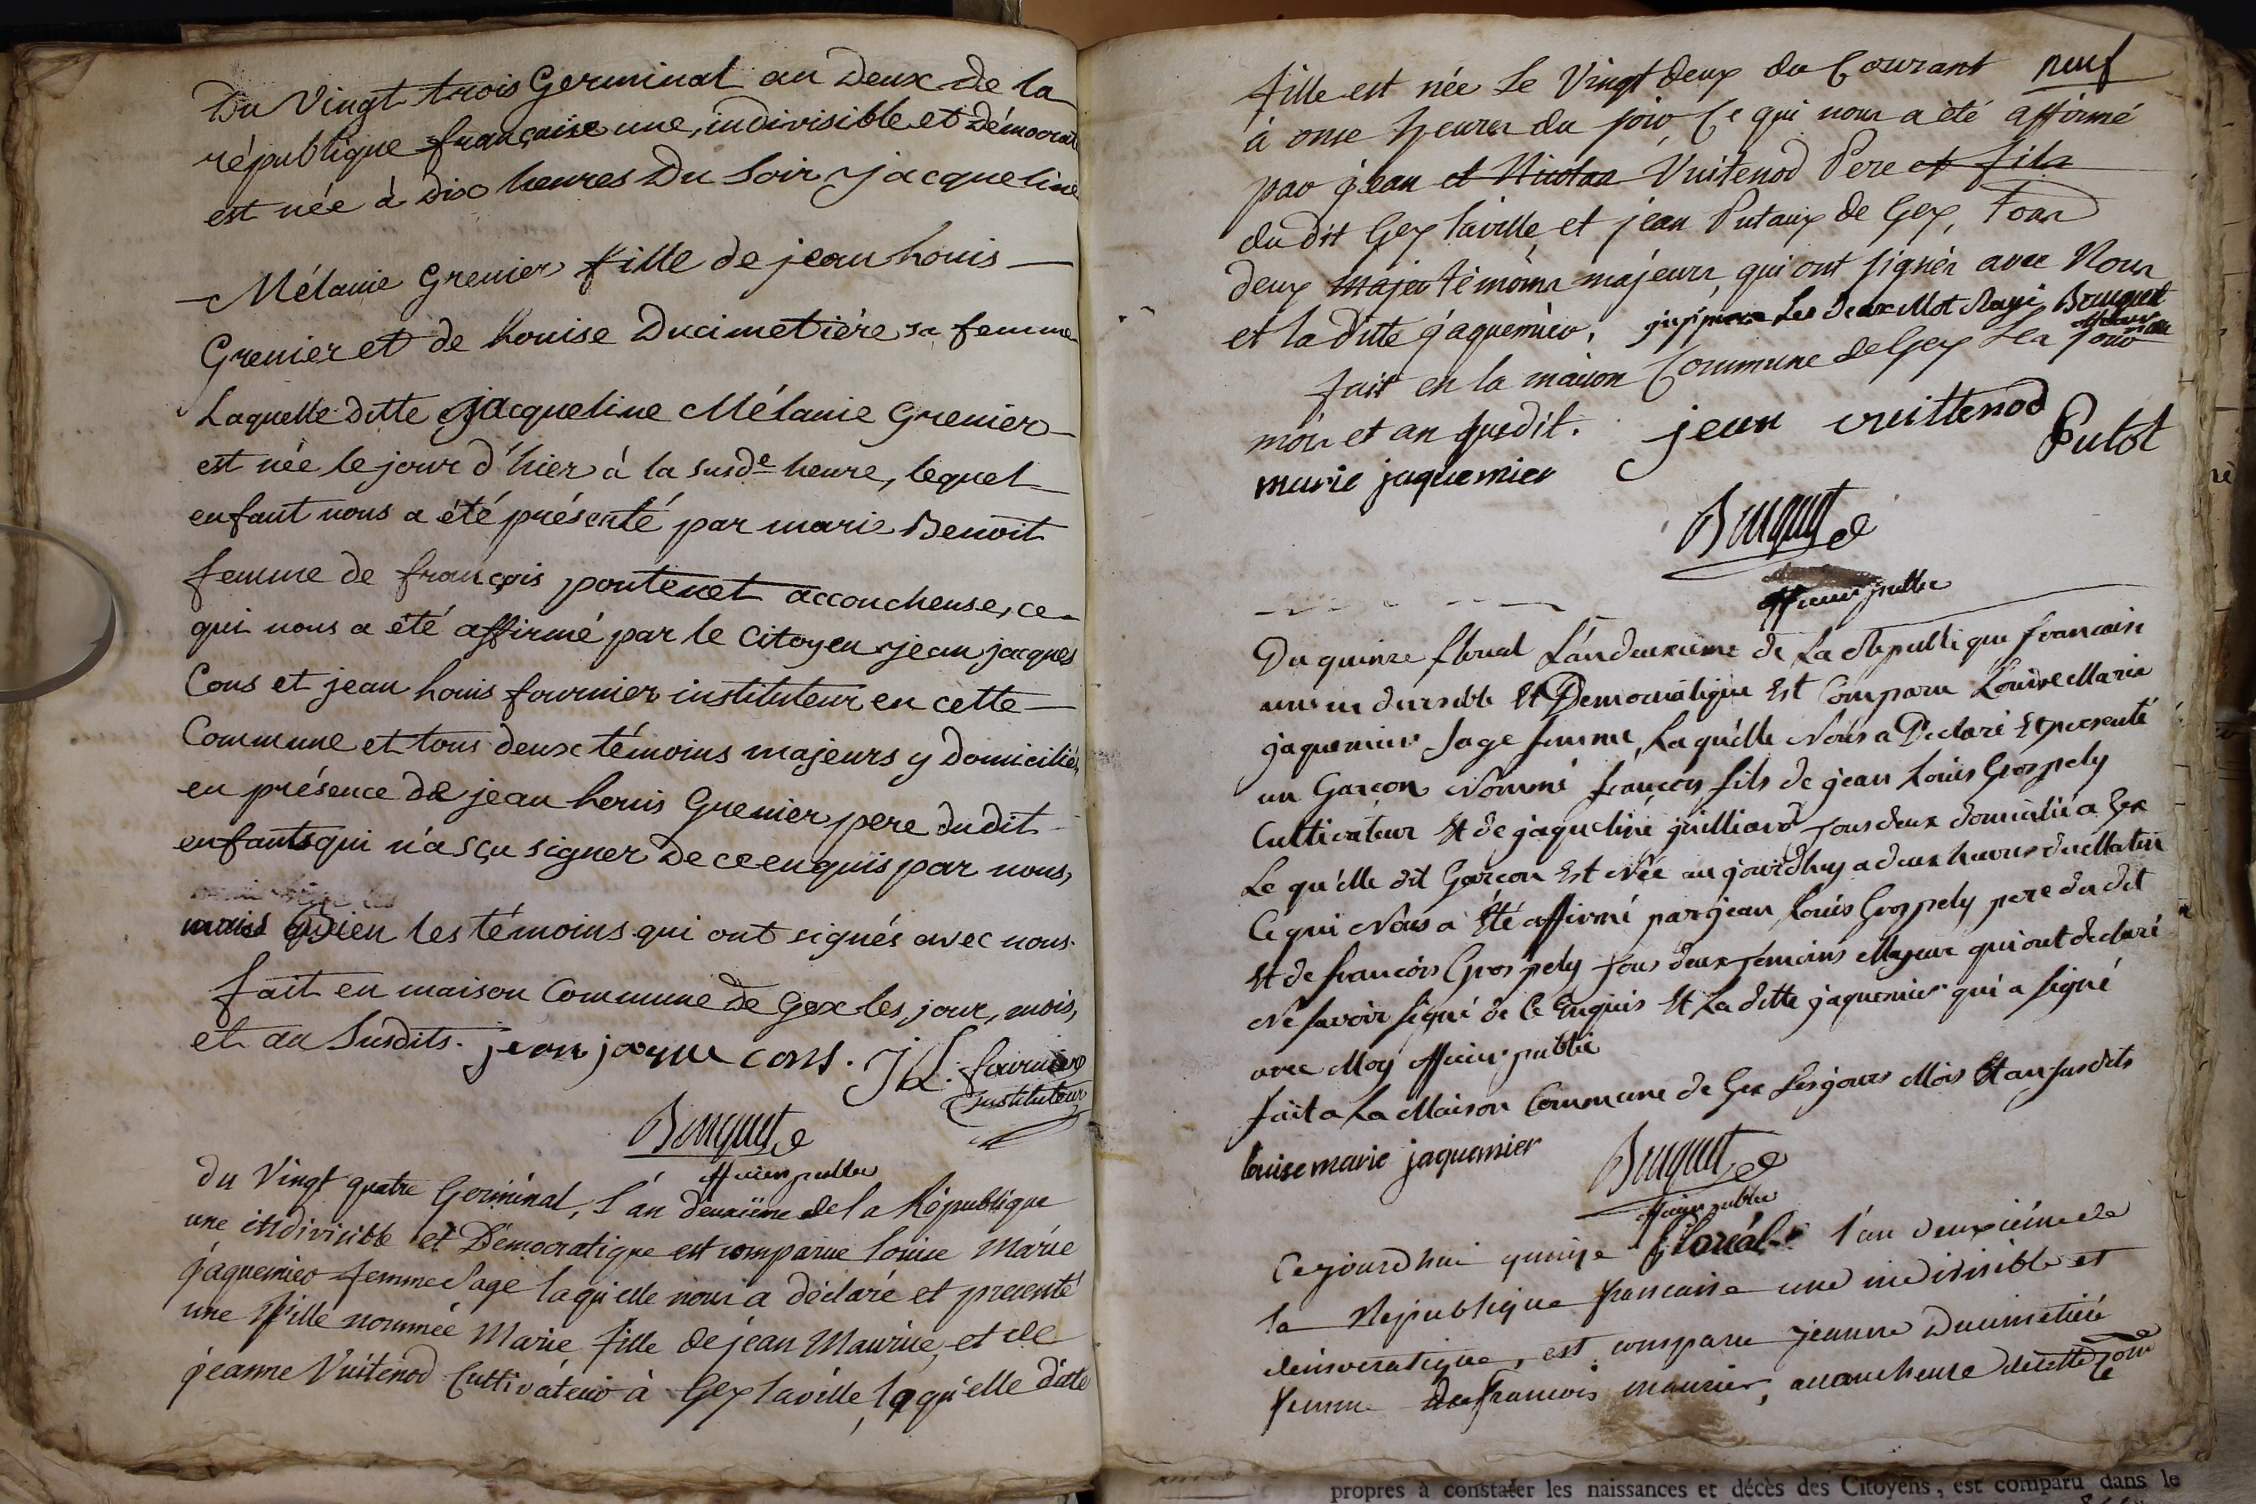 Du Vingt trois Germinal an Deux de la
république française une, indivisible et Démocrat
est née à Dix heures Du Soir jacqueline
Mélanie Grenier fille de jean Louis
Grenier et de Louise Ducimetière sa femme
Laquelle ditte jacqueline Mélanie Grenier
est née le jour d'hier à la susde heure, lequel
enfant nous a été présenté par marie Benoit
femme de françois pontenet accoucheuse, ce
qui nous a été affirmé par le Citoyen jean jacques
Cons et jean Louis fournier instituteur en cette
Commune et tous deux témoins majeurs y Domiciliés
en présence de jean Louis Grenier pere dudit
enfant qui n'a sçu signer De ce enquis par nous,
mais bien les témoins qui ont signés avec nous.
fait en maison Commune de Gex les jour, mois,
et an Susdits. jean jacque cons. J L. fournier
instituteur
Bouquet
officier public
du Vingt quatre Germinal, l'an deuxième de la République
une indivisible et Démocratique est comparue louise Marie
jaquemier femme Sage laquelle nous a déclaré et presenté
une fille nommée Marie fille de jean Maurier, et de
jeanne Vuitenod Cultivateur à Gex laville, laquelle ditte
fille est née Le Vingt deux du Courant neuf
à onse heures du soir, Ce qui nous a été affirmé
par jean et Nicolas Vuitenod Pere et fils
du dit Gex laville et jean Putaux de Gex, Tous
deux majeu témoins majeurs, qui ont signés avec Nous
et la ditte jaquemier. Les Deux Mot Rayé Bouquet
officier
fait en la maison Commune de Gex Les jour
mois et an que dit. jean vuittenod
Putot
marie jaquemier
Bouquet
officier public
Du quinze floreal L'an deuxieme de La Republique francaise
une in divisible Et Democratique Est Comparu Louise Marie
jaquemier Sage femme, Laquelle Nous a Declaré Et presenté
un Garcon Nommé francois fils de jean Louis Grospely
Cultivateur Et de jaqueline juilliard tous deux domicilié a Gex
Le qu'elle dit Garcon Est Née aujourdhuy a deux heures du Matin
Ce qui Nous a Eté affirmé par jean Louis Grospely pere du dit
Et de francois Grospely tous deux temoins Majeur qui ont declaré
Ne savoir signé de Ce Enquis Et La ditte jaquemier qui a signé
avec Moy officier public
fait a La Maison Commune de Gex Les jours Mois Et an susdits
louise marie jaquemier Bouquet
officier public
Cejourdhui quinze floréal l'an deuxiéme de
la République francaise une indivisible et
démocratique, est comparu jeanne Ducimetiére
femme de francois maurier, accoucheuse de cette
propres à constater les naissances et décès des Citoyens, est comparu dans le